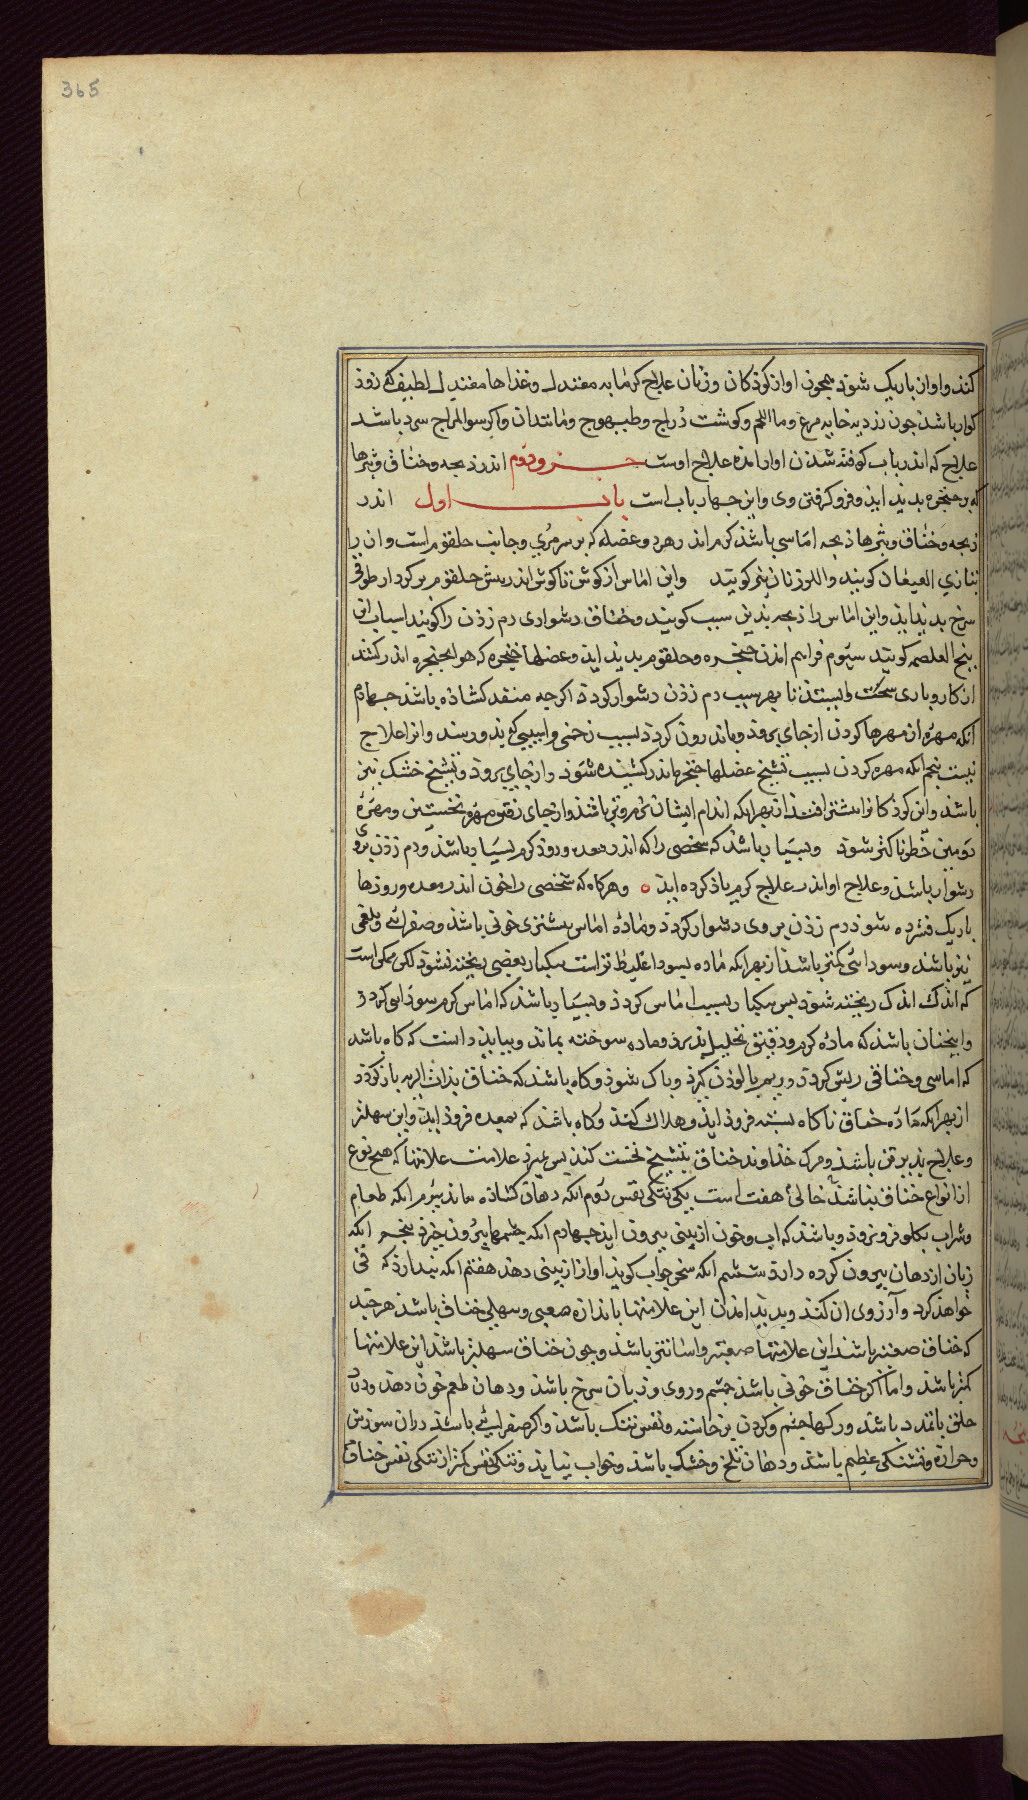 365
کند و اواز باریک شود همجون اواز کوذکان و زنان علاج کرمابه معتدل و غذاها معتدل لطیف که زوذ
کوار باشذ جون زرده خایه مرغ و ما اللحم و کوشت دراج و طیهوج و مانند ان و اکر سو المزاج سرد باشد
علاج که اندر باب کوفته شدن اواز امده علاج اوست جــزو دوم اندر ذبحه و خناق و بثرها
که بر حنجره بدید ایذ و فرو کرفتن وی و این جهار باب است بابـــ اول اندر
ذبحه و خناق و بثرها ذبحه اماسی باشذ کرم اندر هر دو عضله که بر سر مری و جانب حلقوم است و ان را
بتازی کویند و اللوزتان نیز کویند واین اماس از کوش تا کوش اندر پیش حلقوم بر کردار طوقی
سرخ بدید ایذ و این اماس را ذبحه بذین سبب کویند و خناق دشواری دم زذن را کویند اسباب ان
پنج کویند سوم فراهم امدن حنجره و حلقوم بدید اید و عضلها حنجره که هوا بحنجره اندر کشد
از کار و باری سخت و ایستذ تا بهر سبب دم زذن دشوار کردذ اکر جه منفد کشاذه باشذ جهارم
انکه مهره از مهرها کردن از جای بروذ و باندرون کردذ بسبب زخمی و اسیبی که بذو رسد و انرا علاج
نیست بنجم انکه مهره کردن بسبب تشنج عضلها حنجره باندر کشیده شوذ و از جای بروذ و تشنج خشک نیز
باشد و این کوذکانرا بیشتر افتد از بهر انکه اندام ایشان نرم و تر باشذ و از جای رفتن مهره نخستین و مهره
دومین خطرناکتر شود و بسیار باشذ که شخصی را که اندر معده و روذ کرم بسیار باشذ و دم زذن بر وی
دشوار باشذ و علاج او اندر علاج کرم یاذ کرده ایذ ه و هرکاه که شخصی را خون اندر معده و روذها
باریک فسرده شوذ دم زذن بر وی دشوار کردذ و ماده اماس بیشتری خونی باشذ و صفرائی و بلغمی
نیز باشد و سودائی کمتر باشذ از بهر انکه ماده سودا غلیظ تر است بیکبار بعضی ریخته نشوذ لکن ممکن است
که اندک اندک ریخته شوذ پس بیکبار سبب اماس کردذ و بسیار باشذ که اماس کرم سودائی کردذ
و اینجنان باشذ که ماده کرم و رقیق تحلیل پذیرذ و ماده سوخته بماند و ببایذ دانست که کاه باشد
که اماسی و خناقی ریش کردذ و ریم پالوذن کیرذ و پاک شوذ و کاه باشذ که خناق بذات الریه باز کردذ
از بهر انکه ماده خناق ناکاه بشش فروذ ایذ و هلاک کند و کاه باشذ که بمعده فروذ ایذ و این سهلتر
و علاج پذیرتر باشذ و مرک خذاوند خناق بتشنج نخست کند پس بمیرذ علامت علامتها که هیچ نوع
از انواع خناق نباشذ خالی هفت است یکی تنکی نفس دوم انکه دهان کشاذه ماند سوم انکه طعام
و شراب بکلو فرو نروذ و باشذ که اب و خون از بینی بیرون ایذ جهارم انکه جشمها بیرون خیزد بنجم انکه
زبان از دهان بیرون کرده دارد ششم انکه سخن جواب کویذ اواز از بینی دهذ هفتم انکه بندارذ که قی
خواهذ کرد و آرزوی ان کند و بدید امدن این علامتها باندازه صعبی و سهلی خناق باشذ هر جند
که خناق صعبتر باشد این علامتها صعبتر و باشذ و جون خناق سهلتر باشذ این علامتها
کمتر باشذ و اما اکر خناق خونی باشذ جشم و روی و زبان سرخ باشذ و دهان طعم خون دهذ و دراز
حلق با تمدد باشذ و رکها جشم و کردن برخاسته و نفس تنک باشذ و اکر صفرایی باشذ در ان سوزش
و حرارة و تشنکی عظیم باشذ و دهان تلخ و خشک باشذ و خواب نیایذ و تنکی نفس کمتر از تنکی نفس خناق